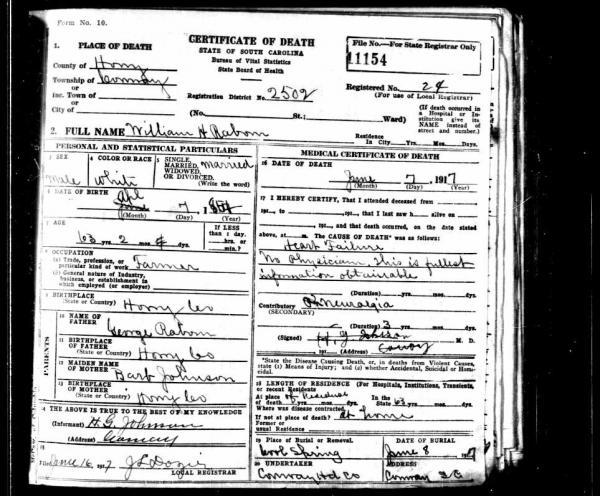 Form No. 10.
CERTIFICATE OF DEATH
STATE OF SOUTH CAROLINA
Bureau of Vital Statistics
State Board of Health
File No.—For State Registrar Only
11154
1. PLACE OF DEATH
County of Horry
Township of Conway
or
Inc. Town of
or
City of
Registration District No. 2502
(No. St.; Ward)
Registered No. 24
(For use of Local Registrar)
(If death occurred in
a Hospital or In-
stitution give its
NAME instead of
street and number.)
2. FULL NAME William H Rabom
Residence
In City yrs. Mos. Days.
PERSONAL AND STATISTICAL PARTICULARS
3 SEX
Male
4 COLOR OR RACE
White
5 SINGLE,
MARRIED,
WIDOWED,
OR DIVORCED.
(Write the word)
Married
6 DATE OF BIRTH
Apl 7
(Month) (Day) (Year)
7 AGE
63 yrs. 2 mos. ds.
If LESS
than 1 day,
hrs. or
min.?
8 OCCUPATION
(a) Trade, profession, or
particular kind of work Farmer
(b) General nature of Industry,
business, or establishment in
which employed (or employer)
9 BIRTHPLACE
(State or Country) Horry Co
PARENTS
10 NAME OF
FATHER
George Rabom
11 BIRTHPLACE
OF FATHER
(State or Country) Horry Co
12 MAIDEN NAME
OF MOTHER
Barb Johnson
13 BIRTHPLACE
OF MOTHER
(State or Country) Horry Co
14 THE ABOVE IS TRUE TO THE BEST OF MY KNOWLEDGE
(Informant) H. G. Johnson
(Address) Conway
15
Filed June 16, 1917 J L Dozier
LOCAL REGISTRAR
MEDICAL CERTIFICATE OF DEATH
16 DATE OF DEATH
June 7, 1917
(Month) (Day) (Year)
17 I HEREBY CERTIFY, That I attended deceased from
191..., to 191..., that I last saw h alive on
191..., and that death occurred, on the date stated
above, at m. The CAUSE OF DEATH* was as follows:
Heart Failure
No Physician, this is fullest
information obtainable
(Duration) yrs. mos. ds.
Contributory Neuralgia
(SECONDARY)
(Duration) 3 yrs. mos. ds.
(Signed) M. D.
191... (Address) Conway
*State the Disease Causing Death, or, in deaths from Violent Causes,
state (1) Means of Injury; and (2) whether Accidental, Suicidal or Hom-
icidal.
18 LENGTH OF RESIDENCE (For Hospitals, Institutions, Transients,
or recent Residents
At place of Residence In the
of death yrs. mos. ds. State 63 yrs. mos. ds.
Where was disease contracted,
If not at place of death? at home
Former or
usual Residence
19 Place of Burial or Removal.
Cool Spring
DATE OF BURIAL
June 8 1917
20 UNDERTAKER
Conway Hd Co
ADDRESS
Conway S C